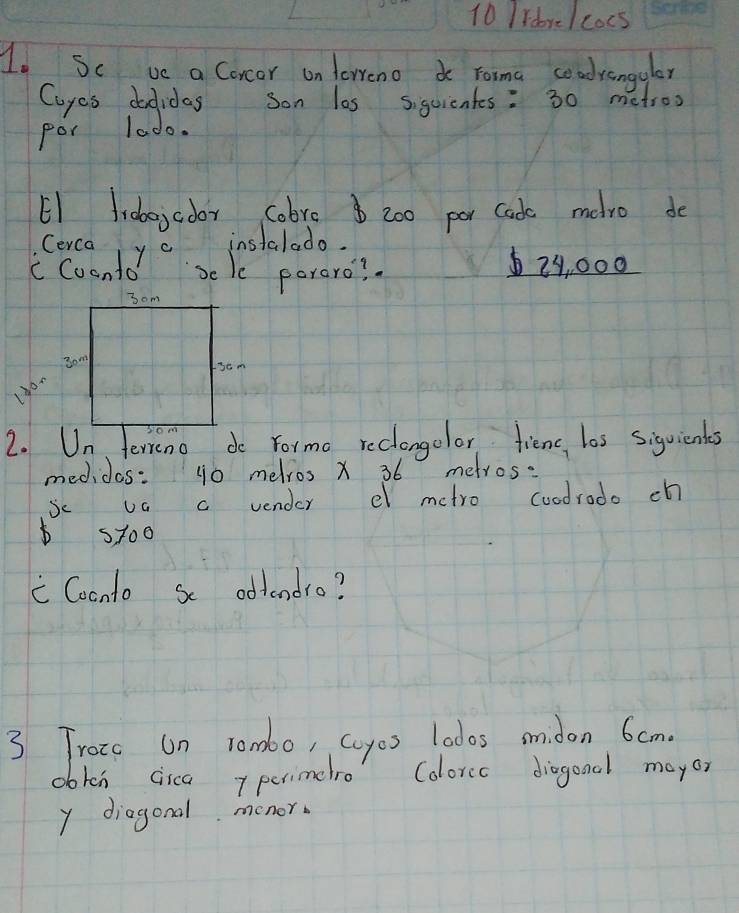 10
Scribe
1. Se va a Cercar un terreno de forma cuadrangular
Cuyas dedidas son las siguientes: 30 metros
por lado.
El trabajador Cobra $ 200 por Cada metro de
Cerca ya instalado.
¿ Cuanto se le pagara?. $ 24,000
30m
30m
30m
120m
30m
2. Un terreno de forma rectangular tiene los siguientes
medidas: 40 metros X 36 metros:
se va a vender el metro cuadrado en
$ 5700
¿ Cuanto se obtendra?
3 Traza un rombo, cuyos lados midan 6cm.
obten area y perimetro Colorea diagonal mayor
y diagonal menor.